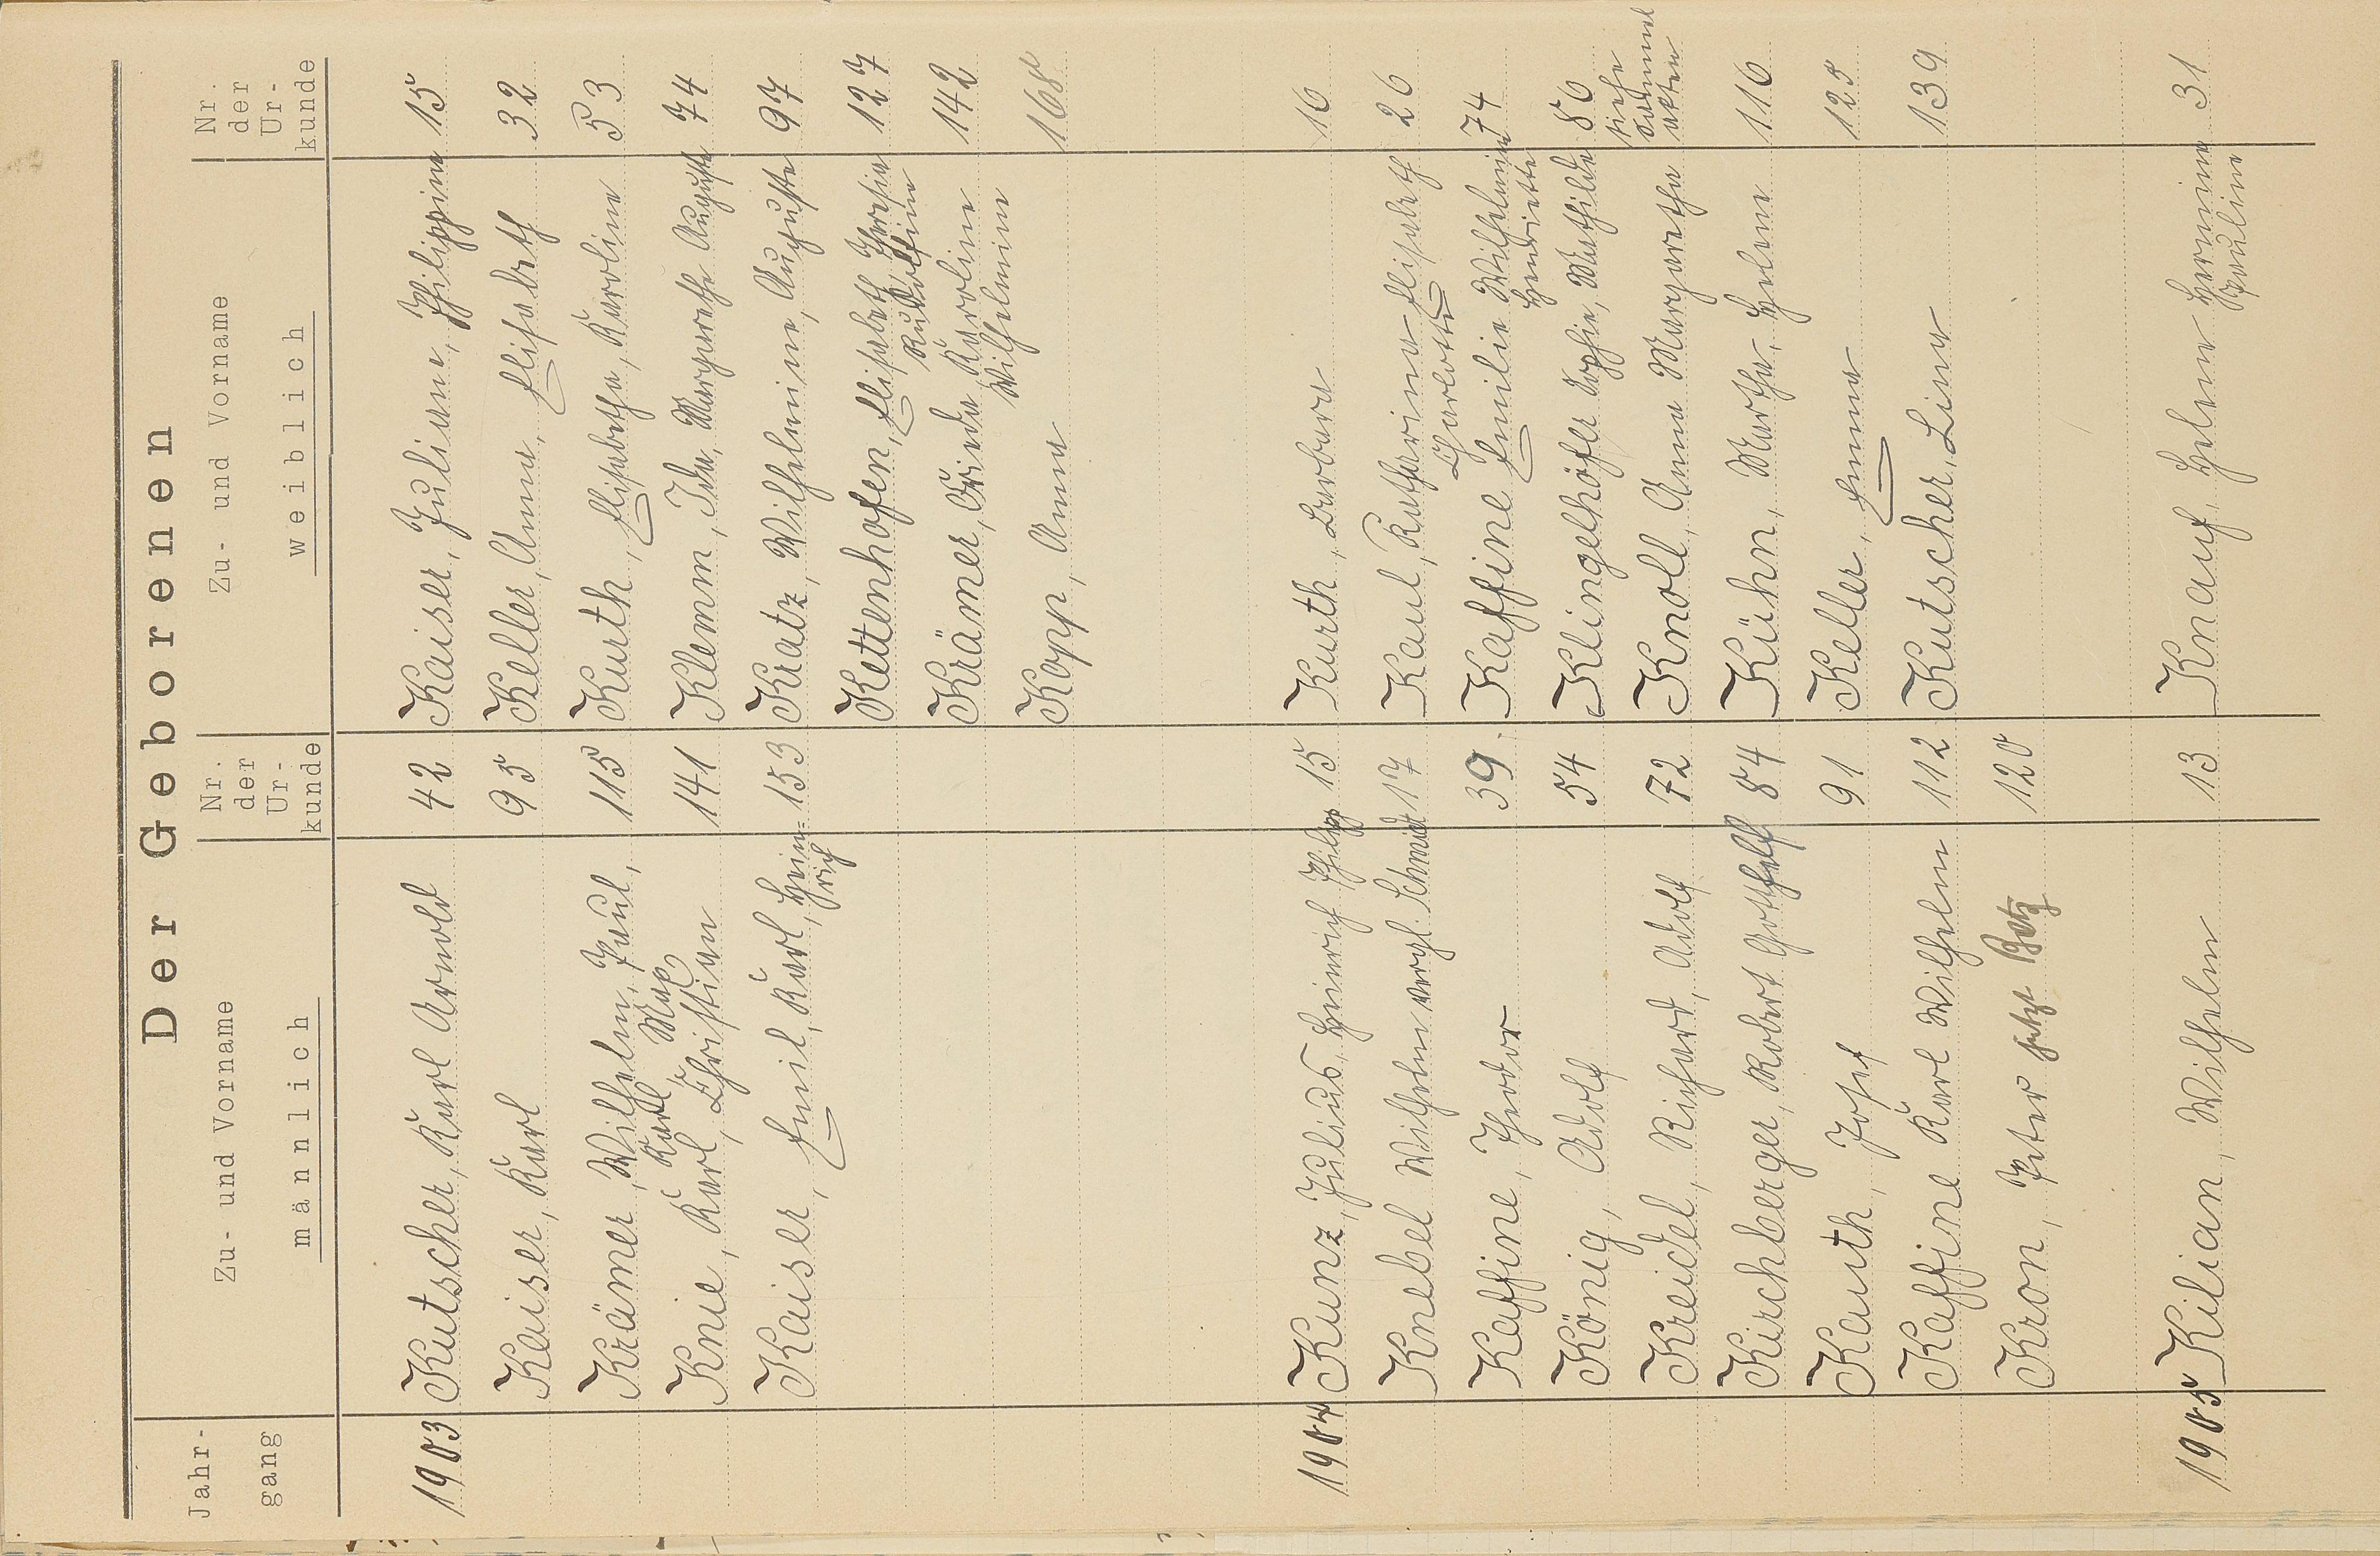 Der Geborenen
Jahr-
gang
Zu- und Vorname
männlich
Nr.
der
Ur-
kunde
Zu- und Vorname
weiblich
Nr.
der
Ur-
kunde
1903 Kutscher, Karl Arnold 42 Kaiser, Juliane, Philippine 15
Kaiser, Karl 95 Keller, Anna, Elisabeth 32
Krämer, Wilhelm, Paul, 115 Kurth, Elisabetha, Karoline 53
Karl, Max
Knie, Karl, Christian 141 Klemm, Ida, Margarethe Auguste 74
Kaiser, Emil, Karl, Hein= 153 Kratz, Wilhelmine, Auguste 97
rich
Kettenhofen, Elisabeth, Theresia 127
Rudolfine
Krämer, Frieda, Karoline 142
Wilhelmine
Kopp, Anna 168
1904 Kunz, Julius, Heinrich Philipp 15 Kurth, Barbara 16
Knebel Wilhelm vergl. Schmidt 17 Kaul, Katharina Elisabeth 26
Charlotte
Kaffine, Theodor 39 Kaffine Emilie Wilhelmine 74
Henriette
König, Adolf 54 Klingelhöfer Sophie, Mathilde 86
siehe
Sammel
akten
Kreidel, Richard, Adolf 72 Knoll, Anna Margaretha
Kirchberger, Robert Gotthelf 84 Kühn, Martha, Helene 116
Kauth, Josef 91 Keller, Emma 125
Kaffine Karl Wilhelm 112 Kutscher, Lina 139
Kron, Peter jetzt Botz 120
1905 Kilian, Wilhelm 13 Knauf, Helene Hermine 31
Pauline